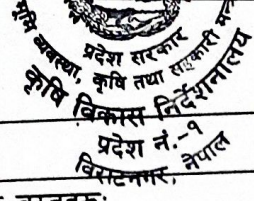 प्रदेश सरकार
भूमि व्यवस्था, कृषि तथा सहकारी
कृषि विकास निर्देशनालय
प्रदेश नं.-१
विराटनगर, नेपाल